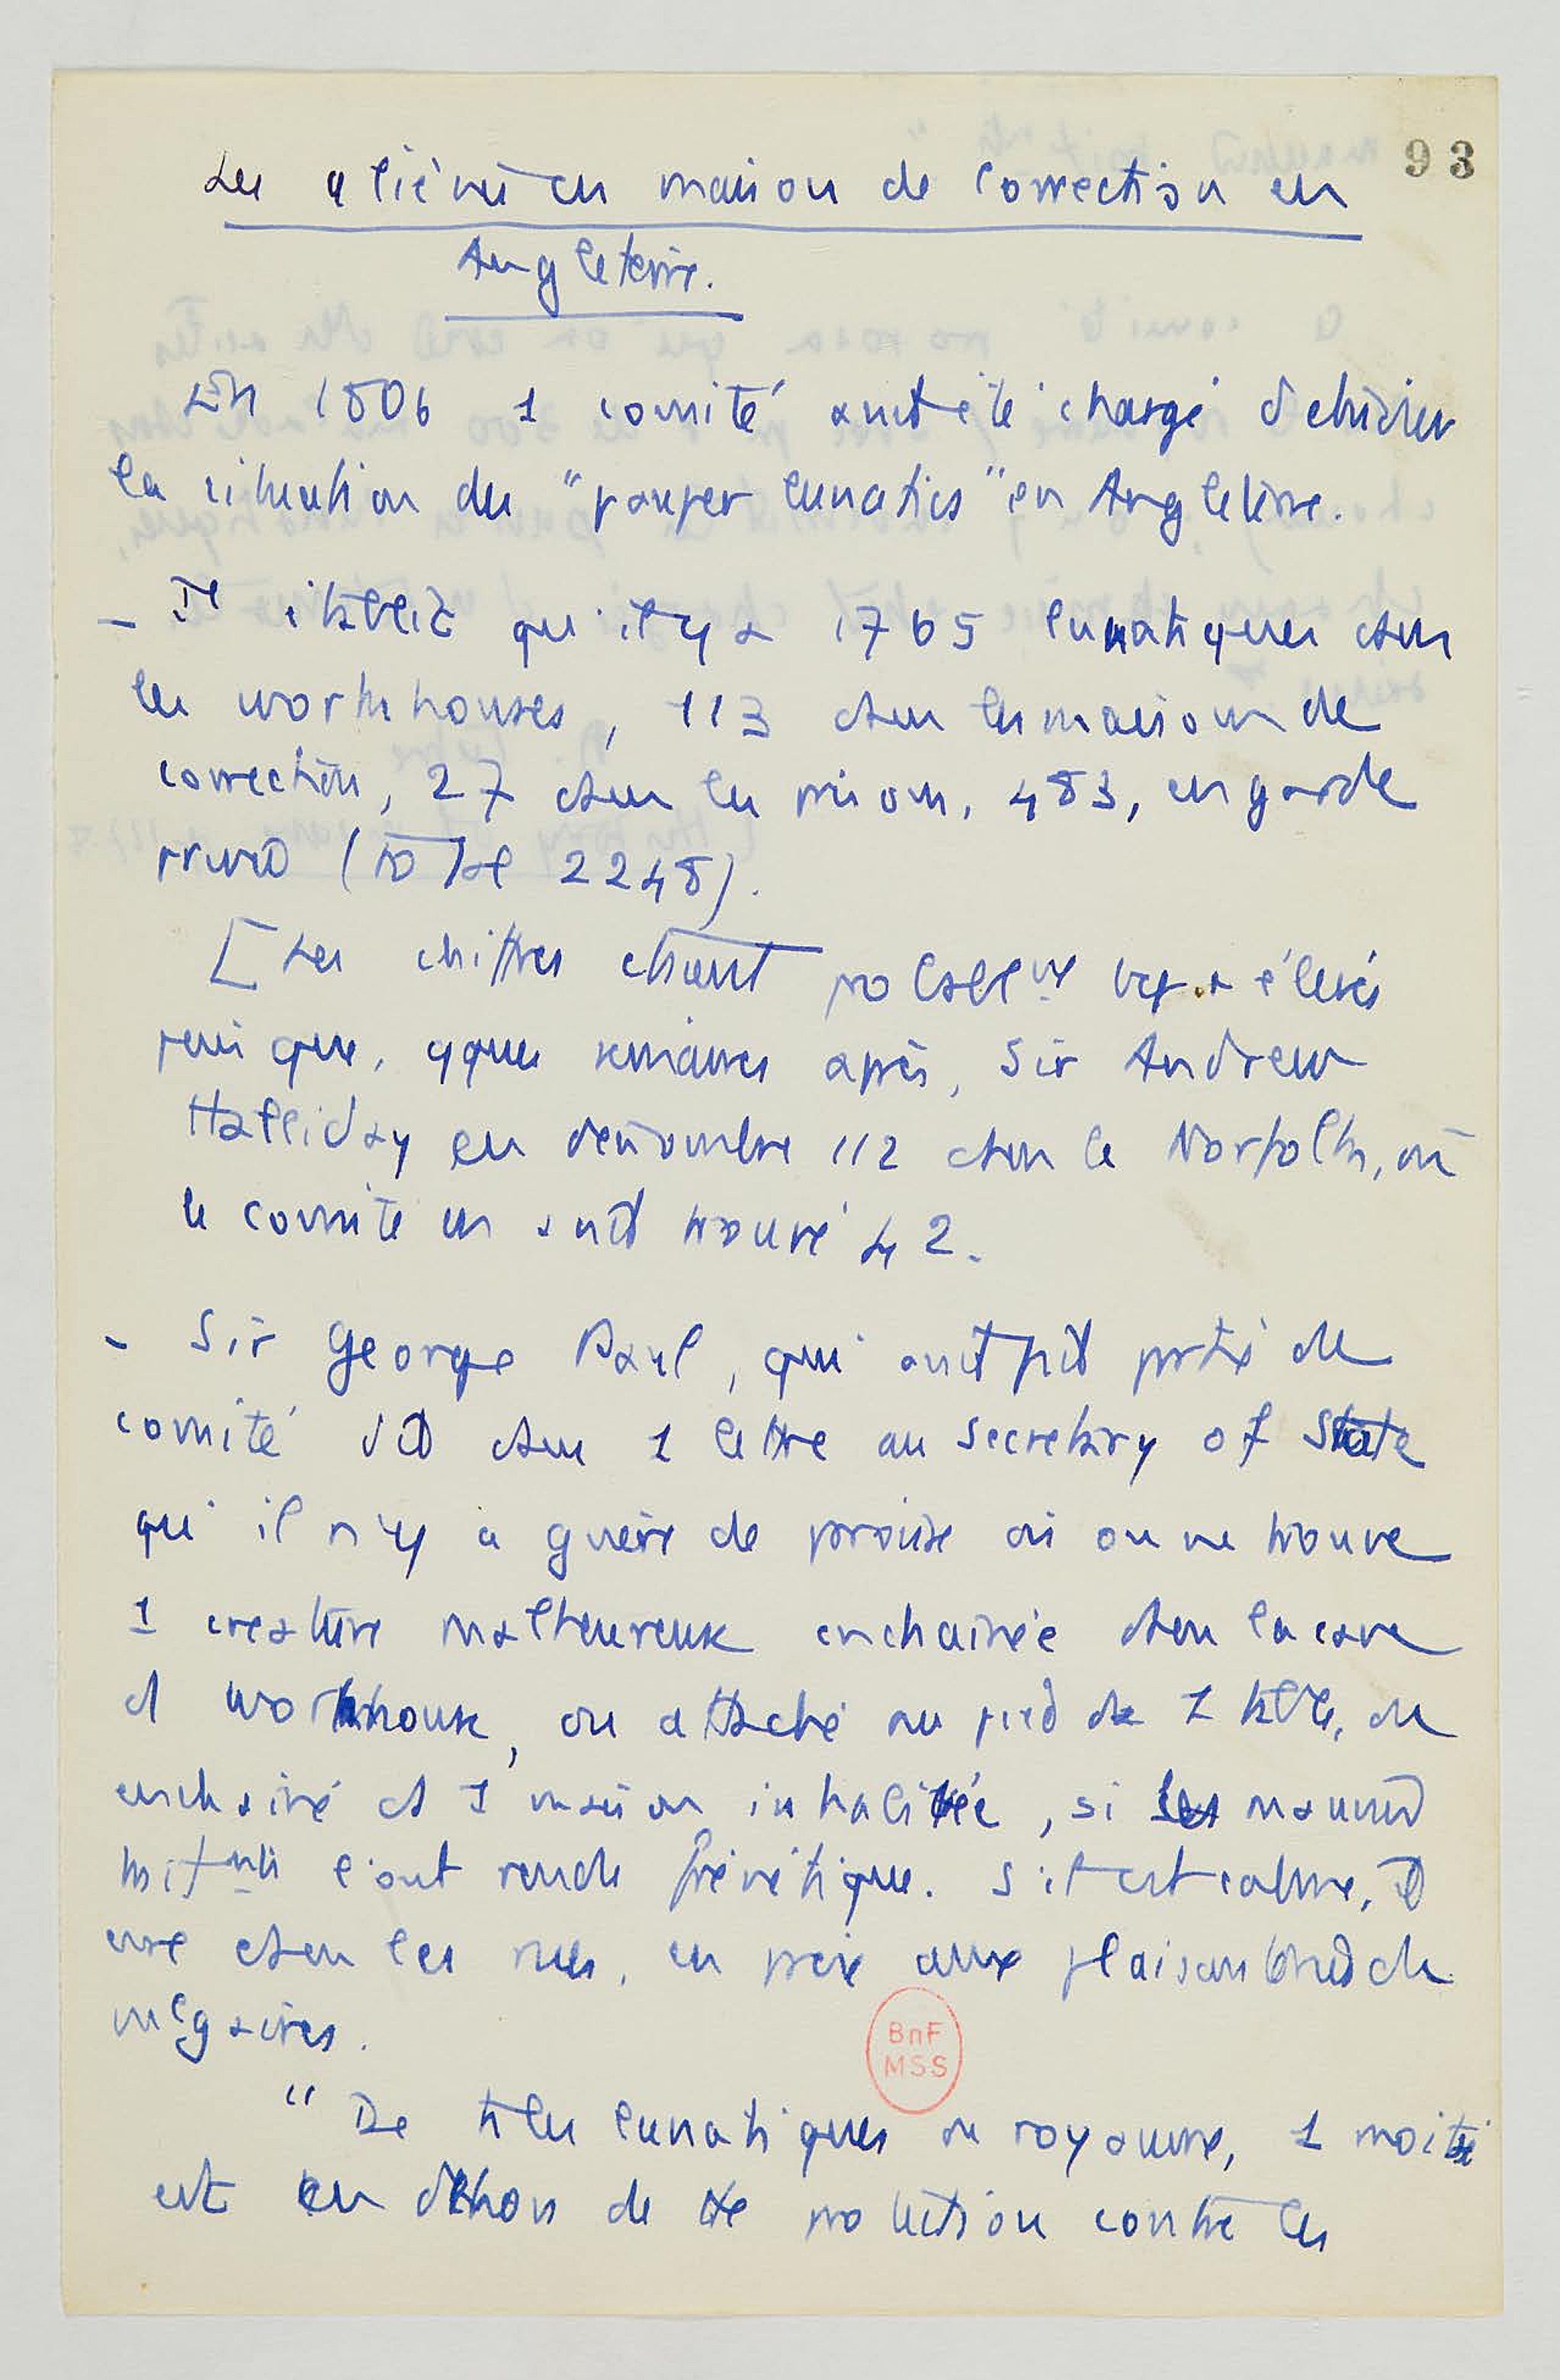 93
Les aliénés en maison de correction en
Angleterre.
En 1806 1 comité avait été chargé d'étudier
la situation des "pauper lunatics" en Angleterre.
- Il établit qu'il y a 1765 lunatiques dans
les workhouses, 113 dans les maisons de
correction, 27 dans les prisons, 483, en garde
privée (total 2248).
[Les chiffres étaient probablmt bcp + élevés
puisque, qques semaines après, Sir Andrew
Halliday en dénombre 112 dans le Norfolk, où
le comité en avait trouvé 42.
- Sir George Paul, qui avait fait partie de
comité dit dans 1 lettre au Secretary of State
qu'il n'y a guère de paroisse où on ne trouve
1 créature malheureuse enchaînée dans la cave
d workhouse, ou attaché au pied de 1 table, ou
enchaîné ds 1 maison inhabitée, si les mauvais
traitmts l'ont rendu frénétique. S'il est calme, il
erre dans les rues, en proie aux plaisanteries de
mégaires.
BnF
MSS
"De ts les lunatiques du royaume, 1 moitié
est en dehors de tte protection contre les